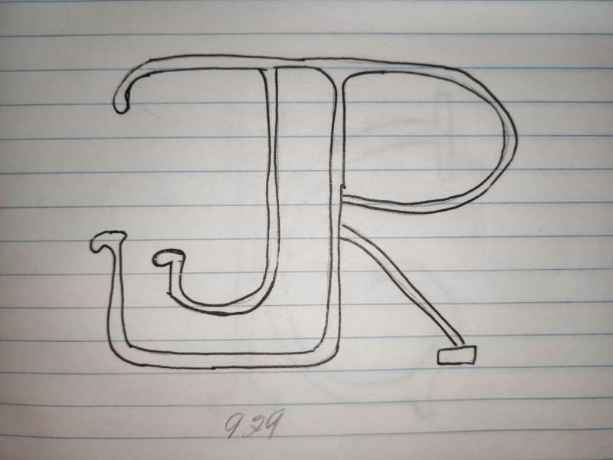 JR
929